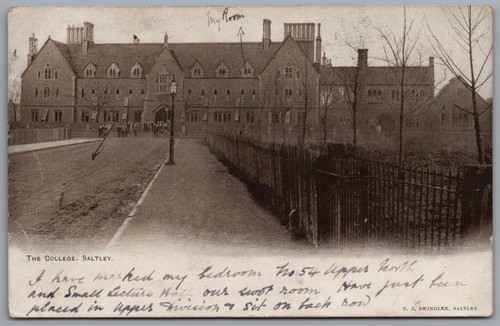 My Room
The College. Saltley.
I have marked my bedroom No 54 Upper North
and Small Lecture Hall our swot room Have just been
placed in Upper Division & Sit on back row
T. J. SWINGLER, SALTLEY